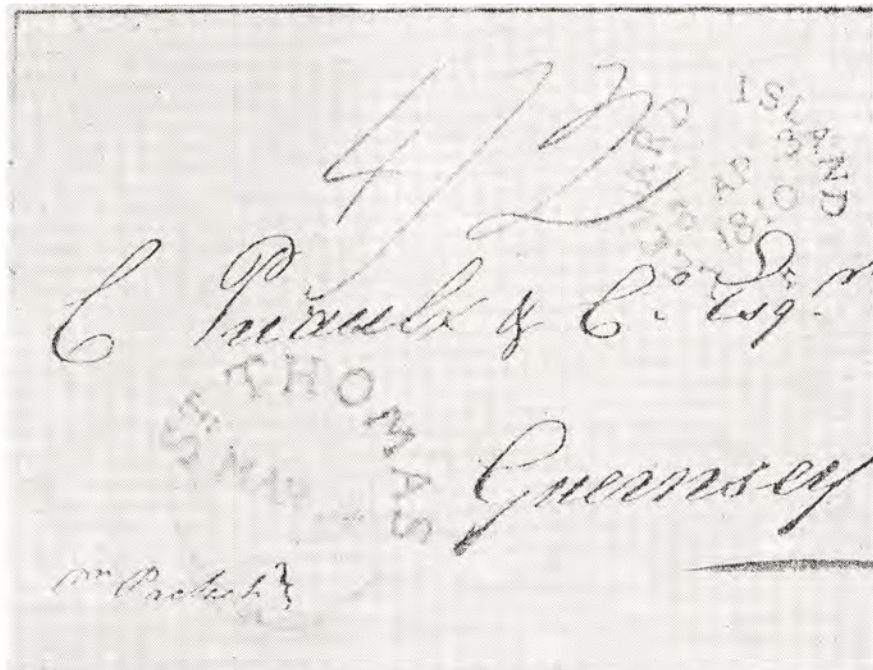 4/2
ISLAND
AP 3
1810
C Priaulx & Co. Esqrs
ST. THOMAS
MAR
Guernsey
pr Packet